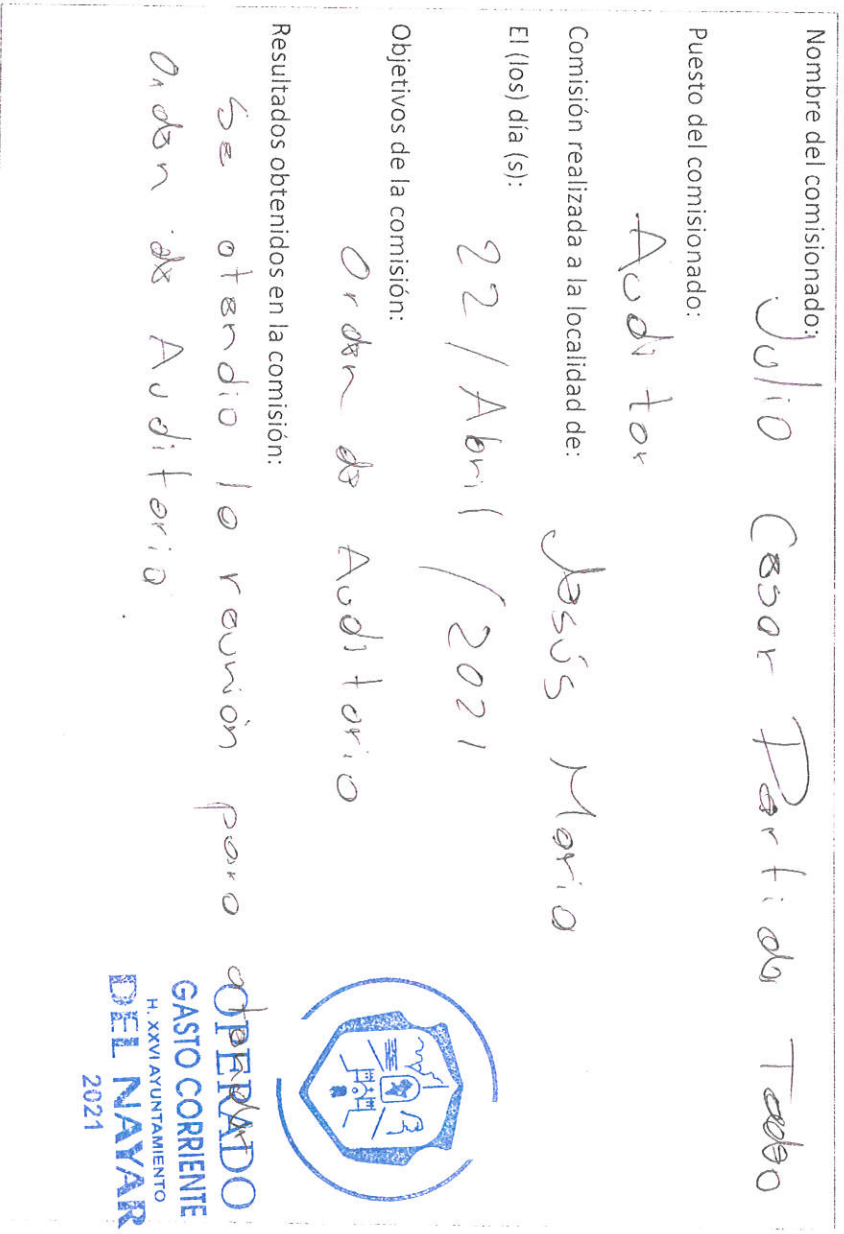 Nombre del comisionado:
Julio Cesar Partida
Puesto del comisionado:
Auditor
Comisión realizada a la localidad de: Jesús Maria
El (los) día (s):
22 / Abril / 2021
Objetivos de la comisión:
Orden de Auditoria
Resultados obtenidos en la comisión:
Se atendio la reunión para atender
Orden de Auditoria.
OPERADO
GASTO CORRIENTE
H. XXVI AYUNTAMIENTO
DEL NAYAR
2021